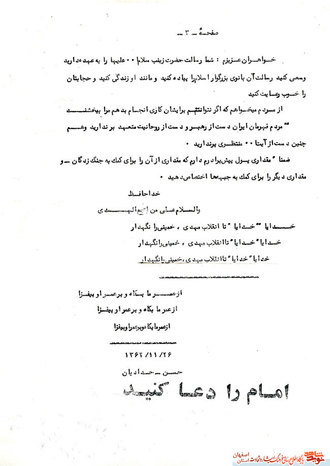 صفحهٔ - ۳ -
خواهران عزیزم: شما رسالت حضرت زینب سلام الله علیها را به عهده دارید
وسعی کنید رسالت آن بانوی بزرگوار اسلام را پیاده کنید و مانند او زندگی کنید و حجابتان
را خوب رعایت کنید
از مردم میخواهم که اگر نتوانستم برایشان کاری انجام بدهم مرا ببخشند
مردم قهرمان ایران دست از رهبر و دست از روحانیت متعهد بر ندارید و هم
چنین دست از آیت‌ا... منتظری برندارید.
ضمنا مقداری پول پیش برادرم دارم که مقداری از آن را برای کمک به جنگ‌زدگان - و
مقداری دیگر را برای کمک به جبهه‌ها اختصاص دهید.
خداحافظ
والسلام علی من اتبع الهدی
خدایا خدایا تا انقلاب مهدی، خمینی را نگهدار
خدایا خدایا تا انقلاب مهدی، خمینی را نگهدار
خدایا خدایا تا انقلاب مهدی، خمینی را نگهدار
از عمر ما بکاه و بر عمر او بیفزا
از عمر ما بکاه و بر عمر او بیفزا
از عمر ما بکاه و بر عمر او بیفزا
۱۳۶۲/۱۱/۲۶
حسن - حدادیان
امام را دعا کنید